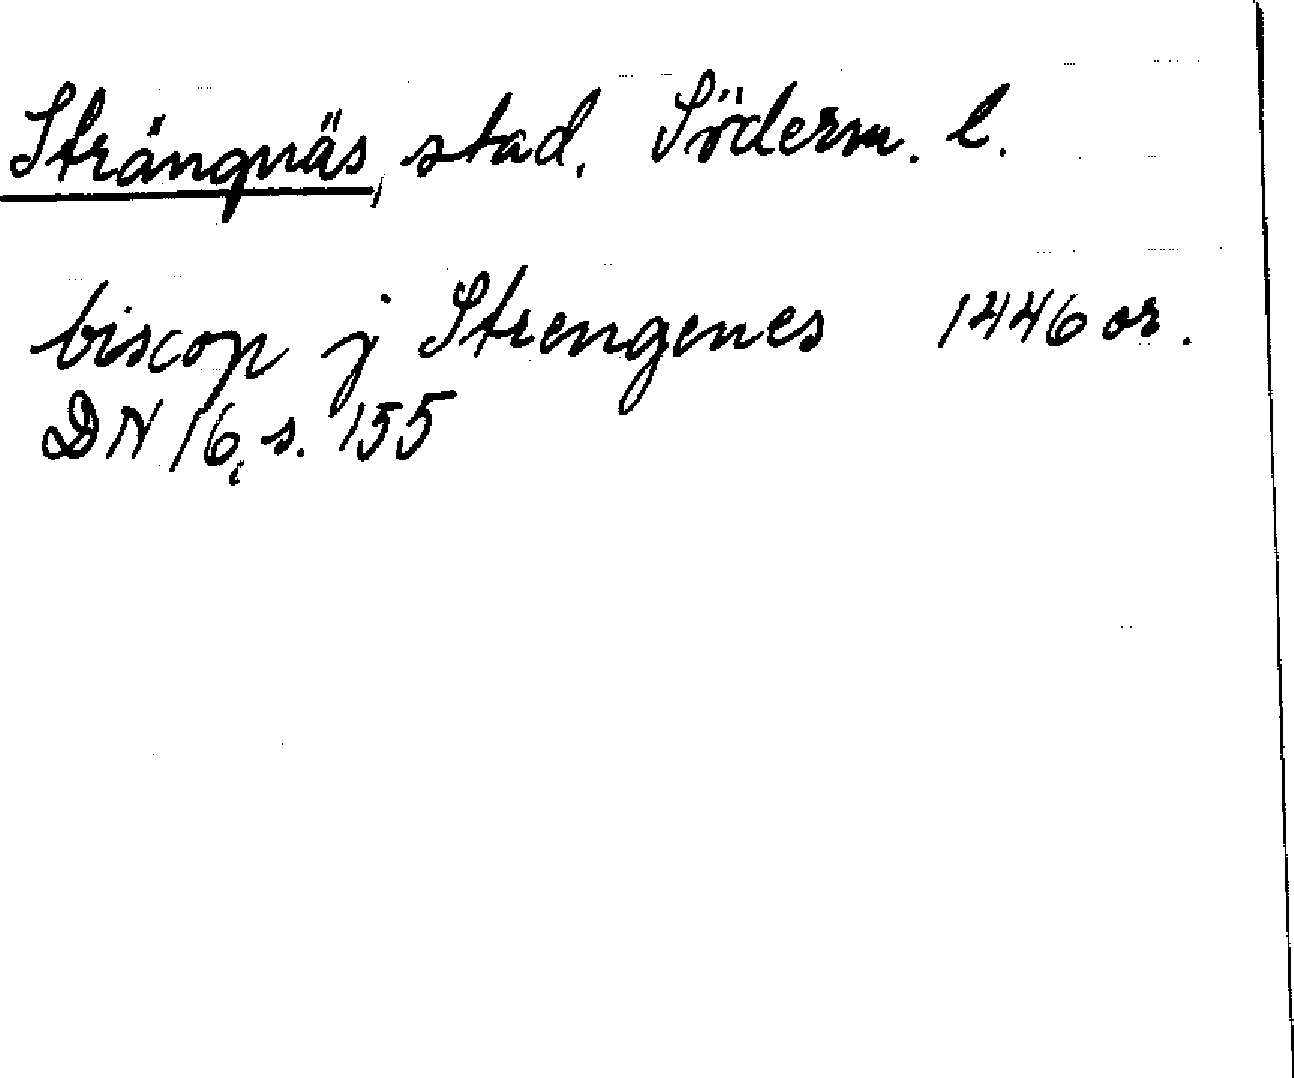 Strängnäs, stad, Söderm. l.
biscop j Strengenes 1446 or.
DN 16, s. 155